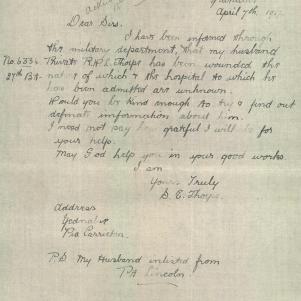 April 7th 1917
Dear Sirs.
I have been informed through
the military department, that my husband
No. 6334 Private R.P.L. Thorpe has been wounded the
27th Btn. nature of which & the hospital to which he
has been admitted are unknown.
Would you be kind enough to try & find out
definate information about him.
I need not say how grateful I will be for
your help.
May God help you in your good works
I am
Yours Truly
S. E. Thorpe.
Address
Yednalue
Via Carrieton.
P.S. My Husband enlisted from
Pt Lincoln.